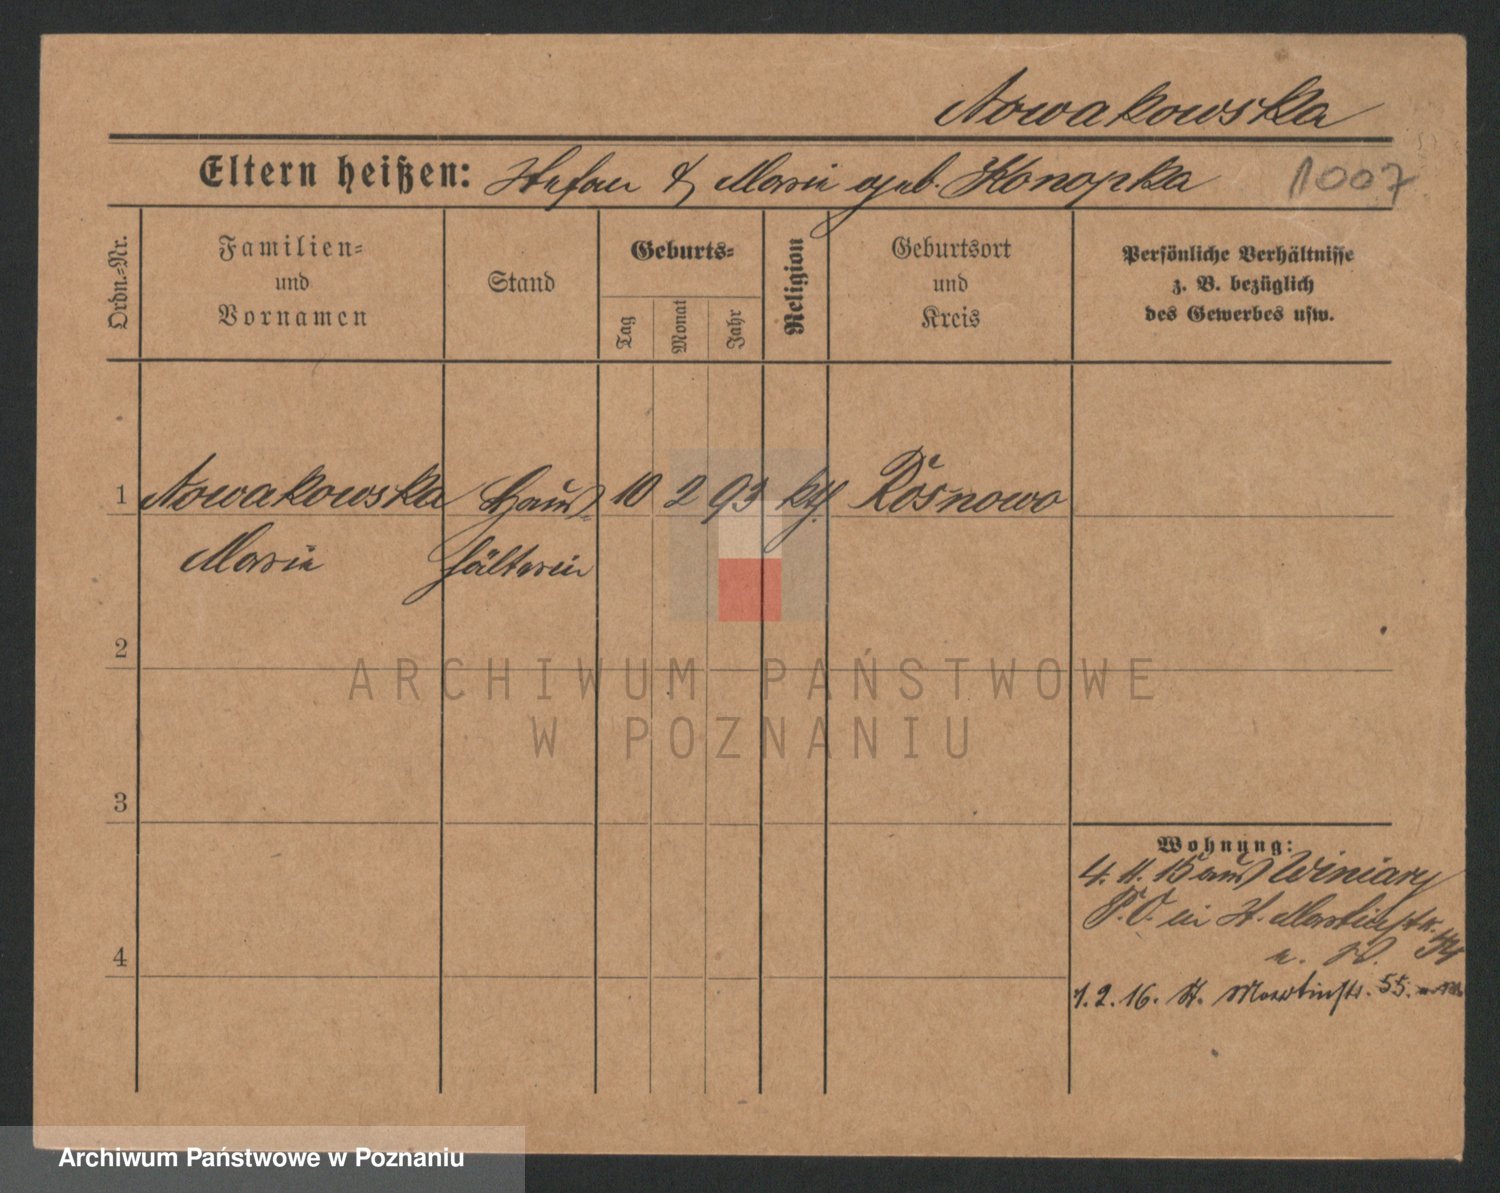 Nowakowska
Eltern heißen: Stefan & Marie geb. Konopka 1007
Ordn.=Nr.
Familien=
und
Vornamen
Stand
Geburts=
Tag
Monat
Jahr
Religion
Geburtsort
und
Kreis
Persönliche Verhältnisse
z. B. bezüglich
des Gewerbes usw.
1 Nowakowska Haus= 10 2 93 kth. Rosnowo
Marie hälterin
2
3
4
Wohnung:
4. 11. 15 aus Winiary
P.O. in St. Martinstr.
1. 2. 16. St. Martinstr. 55.
ARCHIWUM PAŃSTWOWE
W POZNANIU
Archiwum Państwowe w Poznaniu